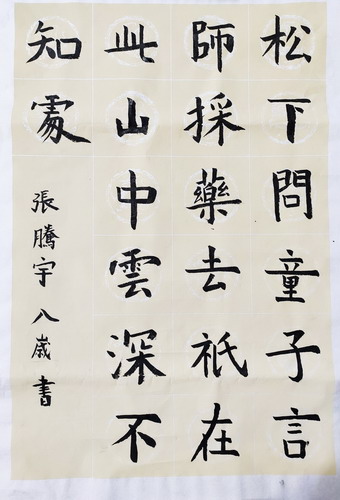 松下問童子言
師採藥去祇在
此山中雲深不
知處
張騰宇八歲書